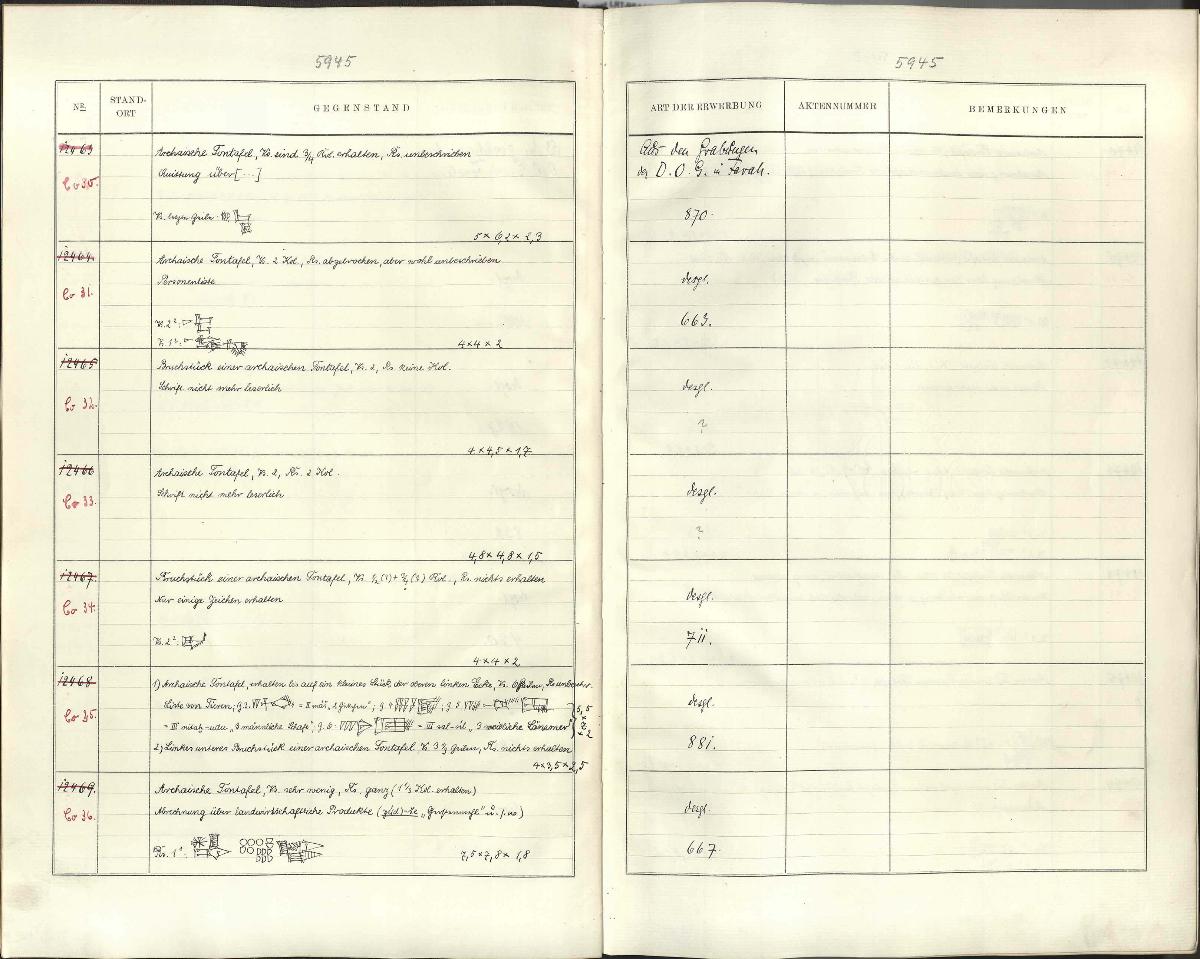 5945
5945
NR. STAND-ORT GEGENSTAND
ART DER ERWERBUNG AKTENNUMMER BEMERKUNGEN
12463
Archaische Tontafel, Vs. sind 3/4 Kol. erhalten, Rs. unbeschrieben
Aus den Grabungen
Co 30.
Quittung über [...]
der D.O.G. in Farah.
870.
5 × 6,2 × 2,3
12464.
Archaische Tontafel, Vs. 2 Kol., Rs. abgebrochen, aber wohl unbeschrieben
Co 31.
Personenliste
desgl.
Vs. 2²:
663.
4×4×2
12465
Bruchstück einer archaischen Tontafel, Vs. 2, Rs. keine Kol.
Co 32.
Schrift nicht mehr leserlich
desgl.
?
4 × 4,5 × 1,7
12466
Archaische Tontafel, Vs. 2, Rs. 2 Kol.
Co 33.
Schrift nicht mehr leserlich
desgl.
?
4,8 × 4,8 × 1,5
12467.
Bruchstück einer archaischen Tontafel, Vs. Kol., Rs. nichts erhalten
Co 34.
Nur einige Zeichen erhalten
desgl.
Vs. 2²:
711.
4 × 4 × 2
12468
1) Archaische Tontafel, erhalten bis auf ein kleines Stück der oberen linken Ecke, Vs.
Co 35.
Liste von Tieren;
desgl.
"3 männliche Schafe", "3 weibliche Lämmer"
5,5 × × 2
2) Linkes unteres Bruchstück einer archaischen Tontafel Vs. 3 Zeilen, Rs. nichts erhalten
881.
4×3,5×2,5
12469.
Archaische Tontafel, Vs. sehr wenig, Rs. ganz (1 1/3 Kol. erhalten)
Co 36.
Abrechnung über landwirtschaftliche Produkte
desgl.
Rs. 1¹:
7,5×7,8× 1,8
667.